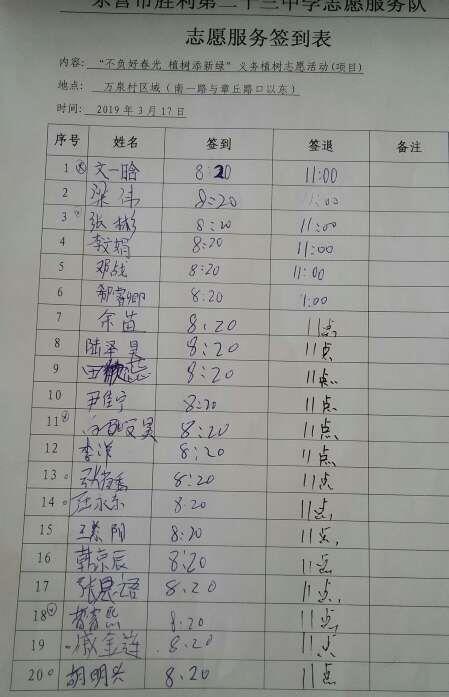 东营市胜利第二十三中学志愿服务队
志愿服务签到表
内容：“不负好春光 植树添新绿”义务植树志愿活动(项目)
地点： 万泉村区域（南一路与章丘路口以东）
时间： 2019 年 3 月 17 日
序号 姓名 签到 签退 备注
1 文一晗 8:20 11:00
2 梁伟 8:20 11:00
3 张彬 8:20 11:00
4 李文娟 8:20 11:00
5 邓战 8:20 11:00
6 8:20 1:00
7 余苗 8.20 11点
8 陆泽昊 8:20 11点
9 8:20 11点
10 尹佳宁 8:20 11点
11 8:20 11点
12 李洋 8:20 11点
13 8:20 11点
14 汪永东 8.20 11点
15 王慕阳 8:20 11点
16 韩京辰 8:20 11点
17 张思语 8.20 11点
18 8.20 11点
19 戚金莲 8.20 11点
20 胡明兴 8.20 11点